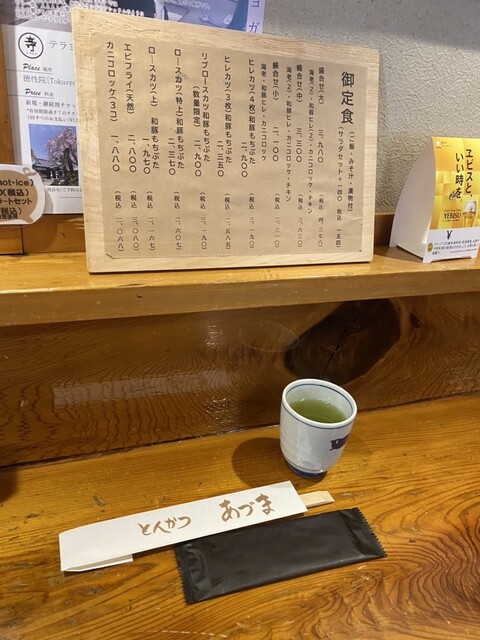 御定食
(ご飯・みそ汁・漬物付)
(サラダセット 一四〇 税込 一五四)
盛合せ(大) 三、九八〇 (税込 四、三七八)
海老(2)・和豚ヒレ(2)・カニコロッケ・チキン
盛合せ(中) 三、三〇〇 (税込 三、六三〇)
海老(2)・和豚ヒレ・カニコロッケ・チキン
盛合せ(小) 二、一〇〇 (税込 二、三一〇)
海老・和豚ヒレ・カニコロッケ
ヒレカツ(4枚)和豚もちぶた 二、九〇〇 (税込 三、一九〇)
ヒレカツ(3枚)和豚もちぶた 二、三五〇 (税込 二、五八五)
リブロースカツ和豚もちぶた
(数量限定) 二、九〇〇 (税込 三、一九〇)
ロースカツ(特上)和豚もちぶた 二、三七〇 (税込 二、六〇七)
ロースカツ(上) 和豚もちぶた 一、九七〇 (税込 二、一六七)
エビフライ(天然) 二、八〇〇 (税込 三、〇八〇)
カニコロッケ(3コ) 一、八八〇 (税込 二、〇六八)
寺
テラミ
Place 場所
徳性院
Price 料金
ヨガ
hot・ice)
(税込)
ートセット
ヱビスと、
いい時を
YEBISU
とんかつ あづま